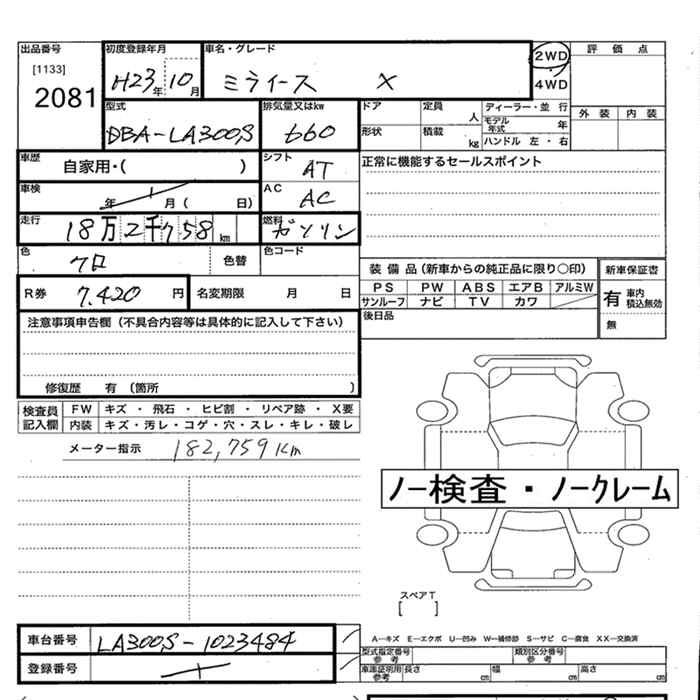 出品番号 初度登録年月 車名・グレード 2WD 評価点
[1133] H23年 10月 ミライース X 4WD
2081 外装 内装
型式 排気量又はkw ドア 定員 人 ディーラー・並行
DBA-LA300S 660 形状 積載 kg モデル年式 年
ハンドル 左・右
車歴 自家用・( ) シフト AT 正常に機能するセールスポイント
車検 年 月( 日) AC AC
走行 km 燃料 ガソリン
色 クロ 色替 色コード
装備品(新車からの純正品に限り○印) 新車保証書
R券 7,420円 名変期限 月 日 PS PW ABS エアB アルミW 有 車内積込無効
サンルーフ ナビ TV カワ
注意事項申告欄(不具合内容等は具体的に記入して下さい) 後日品 無
修復歴 有 (箇所 )
検査員記入欄 FW キズ・飛石・ヒビ割・リペア跡・X要
内装 キズ・汚レ・コゲ・穴・スレ・キレ・破レ
メーター指示 182,759km
ノー検査・ノークレーム
スペアT
[ ]
車台番号 LA300S-1023484 A−キズ E−エクボ U−凹み W−補修部 S−サビ C−腐食 XX−交換済
登録番号 型式指定番号 参考 類別区分番号 参考
車庫証明用 参考 長さ cm 幅 cm 高さ cm